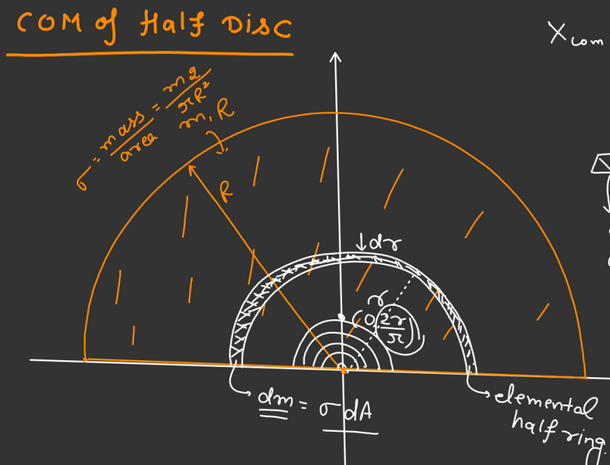 COM of Half Disc
X com
σ = mass/area = m2/πR²
m, R
R
dr
r
(0, 2r/π)
dm = σ dA
elemental
half ring